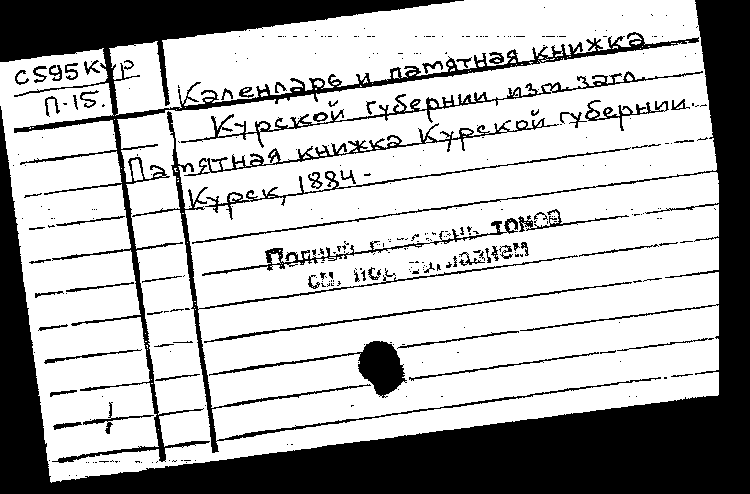 С595Кур
П-15.
Календарь и памятная книжка
Курской губернии, изм. загл.
Памятная книжка Курской губернии.
Курск, 1884-
Полный перечень томов
см. под заглавием